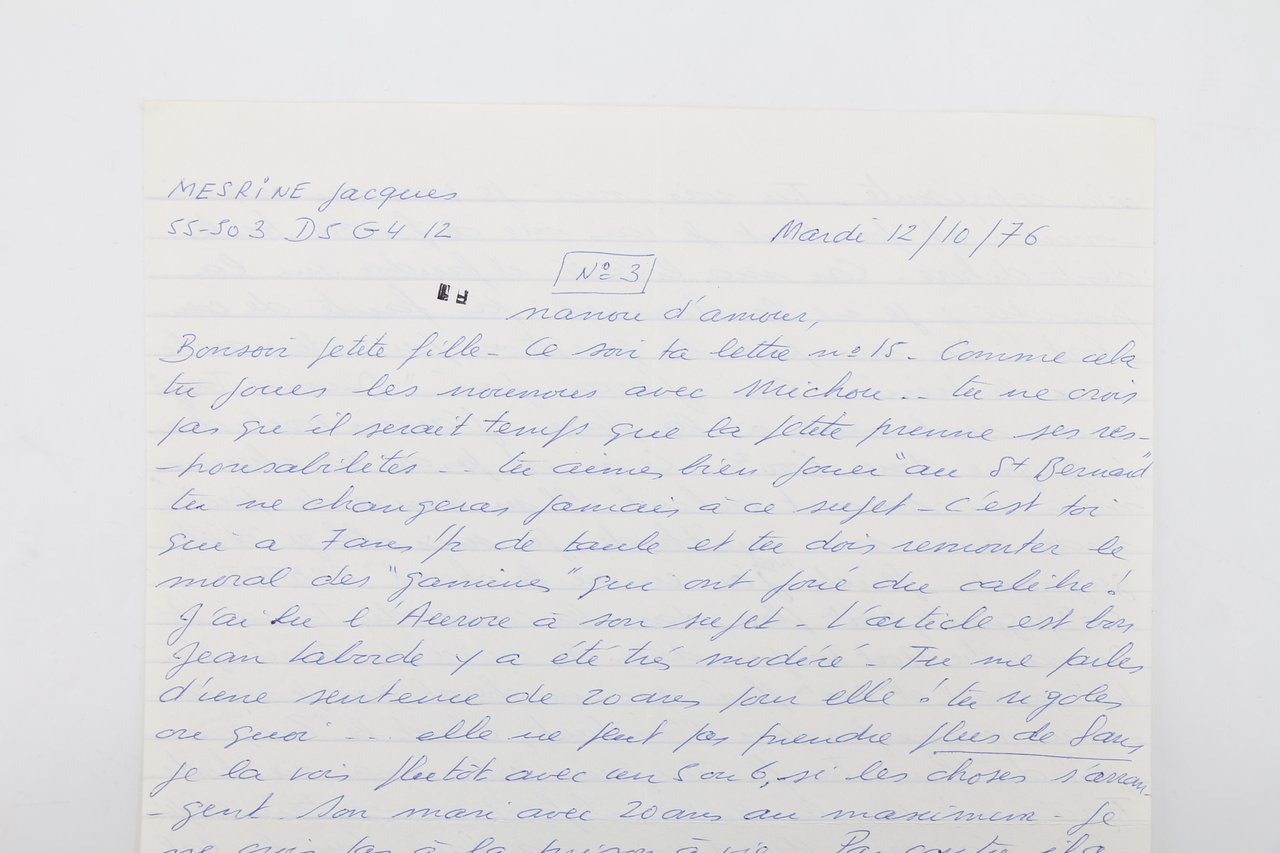 MESRINE Jacques
55-503 D5 G4 12
Mardi 12/10/76
N° 3
nanou d'amour,
Bonsoir petite fille - Ce soir ta lettre n° 15 - Comme cela
tu joues les nounous avec Michou .. tu ne crois
pas qu'il serait temps que la petite prenne ses res-
-ponsabilités .. tu aimes bien jouer "au St Bernard"
tu ne changeras jamais à ce sujet - C'est toi
qui a 7 ans 1/2 de taule et tu dois remonter le
moral des "gamines" qui ont joué du calibre !
J'ai lu l'Aurore à son sujet - L'article est bon
Jean Laborde y a été très modéré - Tu me parles
d'une sentence de 20 ans pour elle ! tu rigoles
ou quoi ... elle ne peut pas prendre plus de 8 ans,
je la vois plutôt avec un 5 ou 6, si les choses s'arran-
-gent. Son mari avec 20 ans au maximum - Je
ne crois pas à la prison à vie. Par contre il a